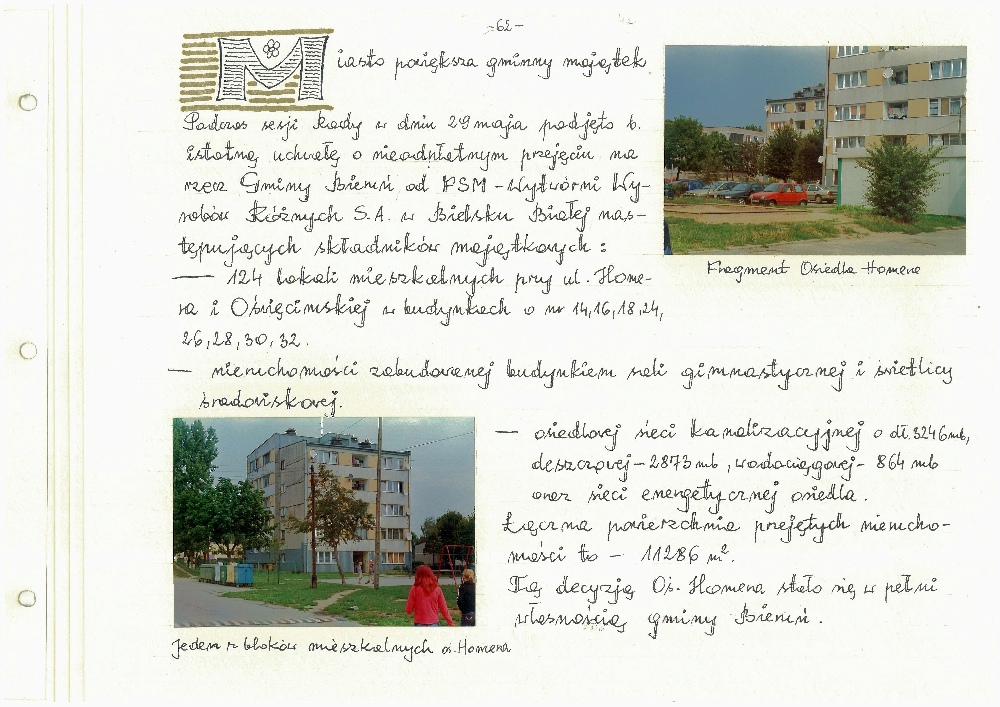 -62-
Miasto powiększa gminny majątek
Podczas sesji Rady w dniu 29 maja podjęto b.
istotną uchwałę o nieodpłatnym przejęciu na
rzecz Gminy Bieruń od FSM - Wytwórni Wy-
robów Różnych S.A. w Bielsku Białej nas-
tępujących składników majątkowych :
— 124 lokali mieszkalnych przy ul. Home-
ra i Oświęcimskiej w budynkach o nr 14,16,18,24,
26,28,30,32.
— nieruchomości zabudowanej budynkiem sali gimnastycznej i świetlicy
środowiskowej.
Fragment Osiedla Homera
— osiedlowej sieci kanalizacyjnej o dł. 3246 mb,
deszczowej - 2873 mb, wodociągowej - 864 mb
oraz sieci energetycznej osiedla.
Łączna powierzchnia przejętych nierucho-
mości to - 11286 m².
Tą decyzją Oś. Homera stało się w pełni
własnością gminy Bieruń.
Jeden z bloków mieszkalnych os. Homera